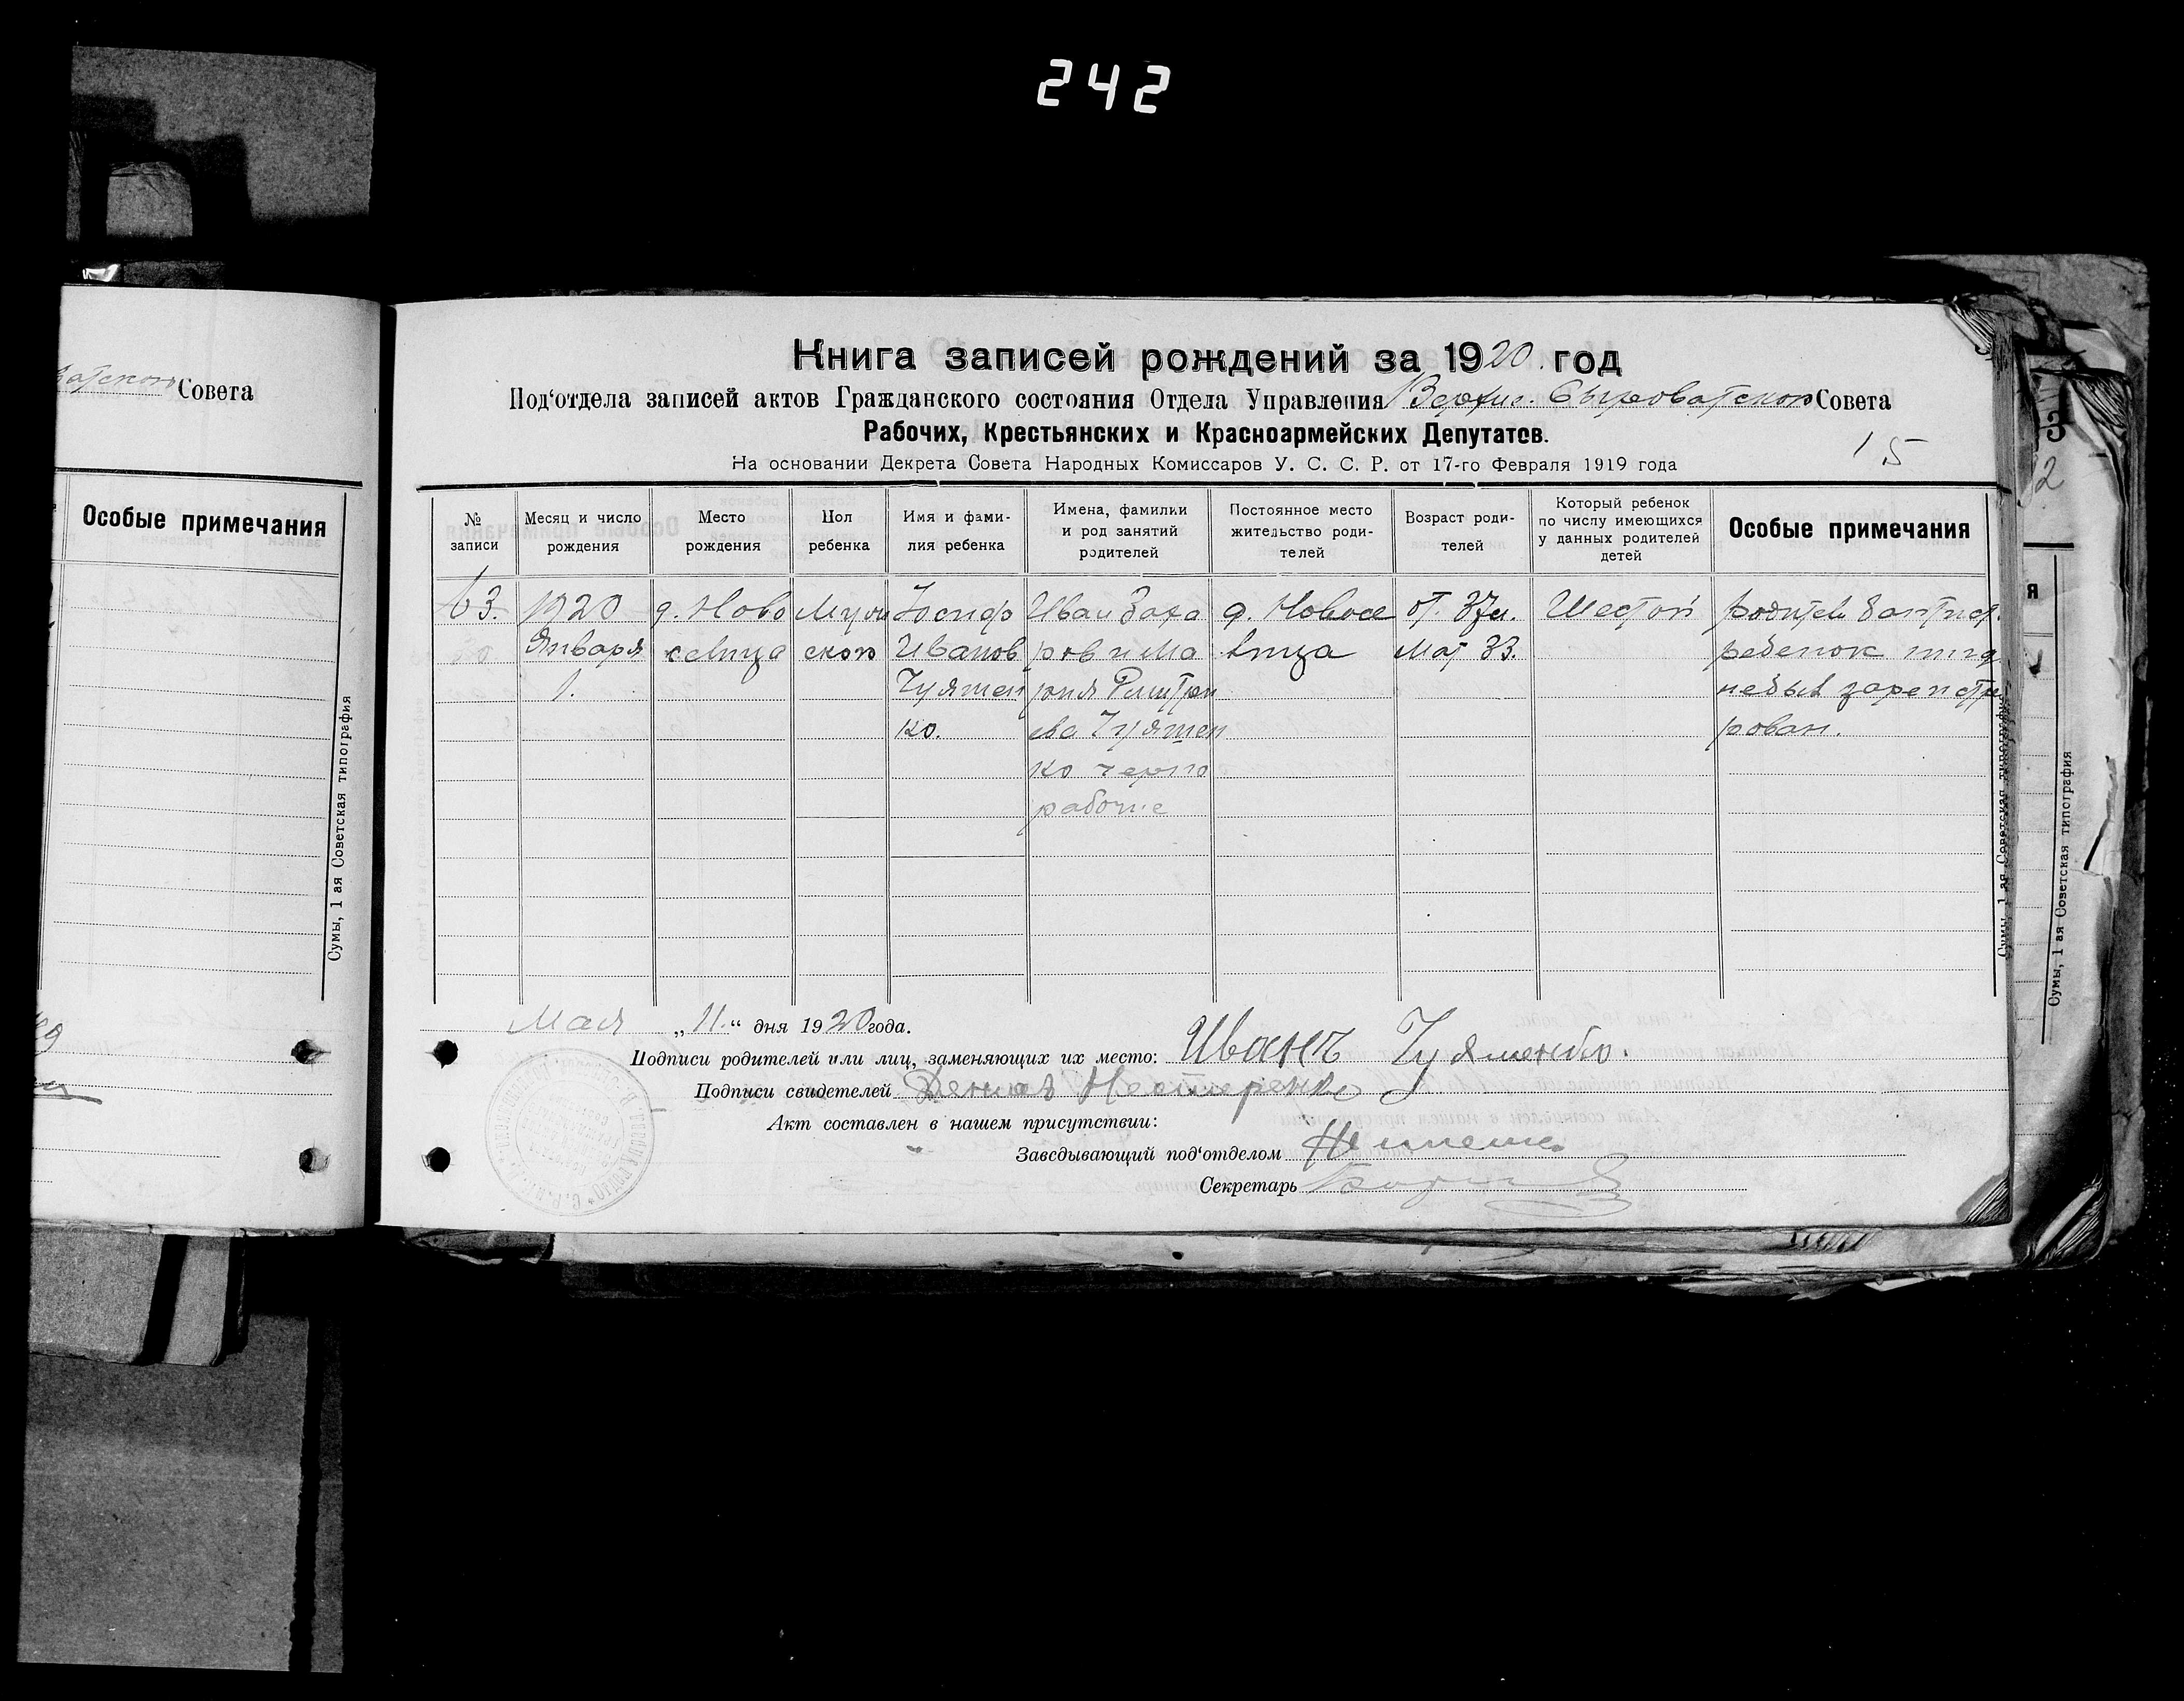 242
Совета
Особые примечания
Сумы, 1 ая Советская типография
Книга записей рождений за 1920. год
Под‘отдела записей актов Гражданского состояния Отдела Управления Верхн. Сыроватского Совета
Рабочих, Крестьянских и Красноармейских Депутатов.
На основании Декрета Совета Народных Комиссаров У. С. С. Р. от 17-го Февраля 1919 года
15
№ записи
Месяц и число рождения
Место рождения
Пол ребенка
Имя и фами-
лия ребенка
Имена, фамилии
и род занятий
родителей
Постоянное место
жительство роди-
телей
Возраст роди-
телей
Который ребенок
по числу имеющихся
у данных родителей
детей
Особые примечания
63.
1920
Января
1.
д. Ново
селица
Мужи
ского
Иосиф
Иванов
Чуямен
ко.
Иван Заха
ров и Ма
рия
ева Чуямен
ко черно
рабочие
д. Новосе
лица
от. 37л.
Мат 33.
Шестой
родители баптист.
ребенок нигд
небыл зарегистри
рован.
Сумы, 1 ая Советская типография
Мая „11.“ дня 1920 года.
Подписи родителей или лиц, заменяющих их место: Иванъ Чуяменко.
Подписи свидетелей Нестеренко
Акт составлен в нашем присутствии:
Заведывающий под‘отделом
Секретарь
3
12
я
Сумы, 1 ая Советская типография